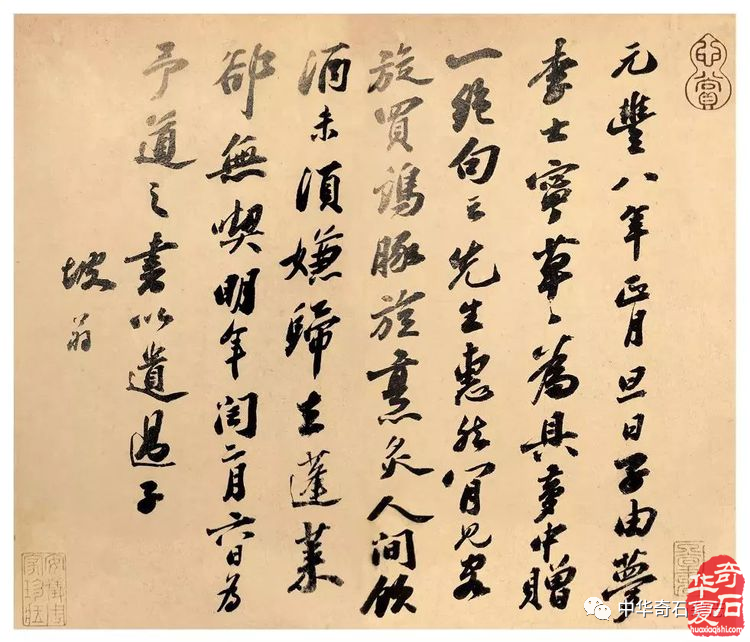 元豐八年正月旦日子由夢
李士寧草〻為具夢中贈
一絕句云先生惠然肯見客
旋買鷄豚旋烹炙人間飲
酒未須嫌歸去蓬萊
卻無喫明年閏二月六日為
予道之書以遺過子
坡翁
心賞
安儀周家珍藏
中华奇石
华夏奇石
huaxiaqishi.com